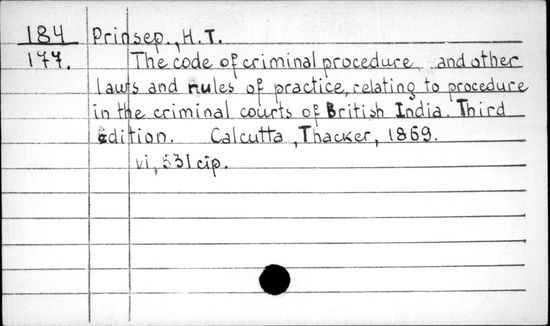 184 Prinsep., H.T.
177. The code of criminal procedure and other
laws and rules of practice, relating to procedure
in the criminal courts of British India. Third
edition. Calcutta, Thacker, 1869.
vi, 531 cip.